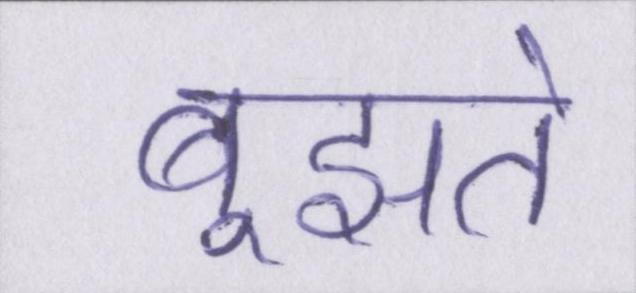 बूझते